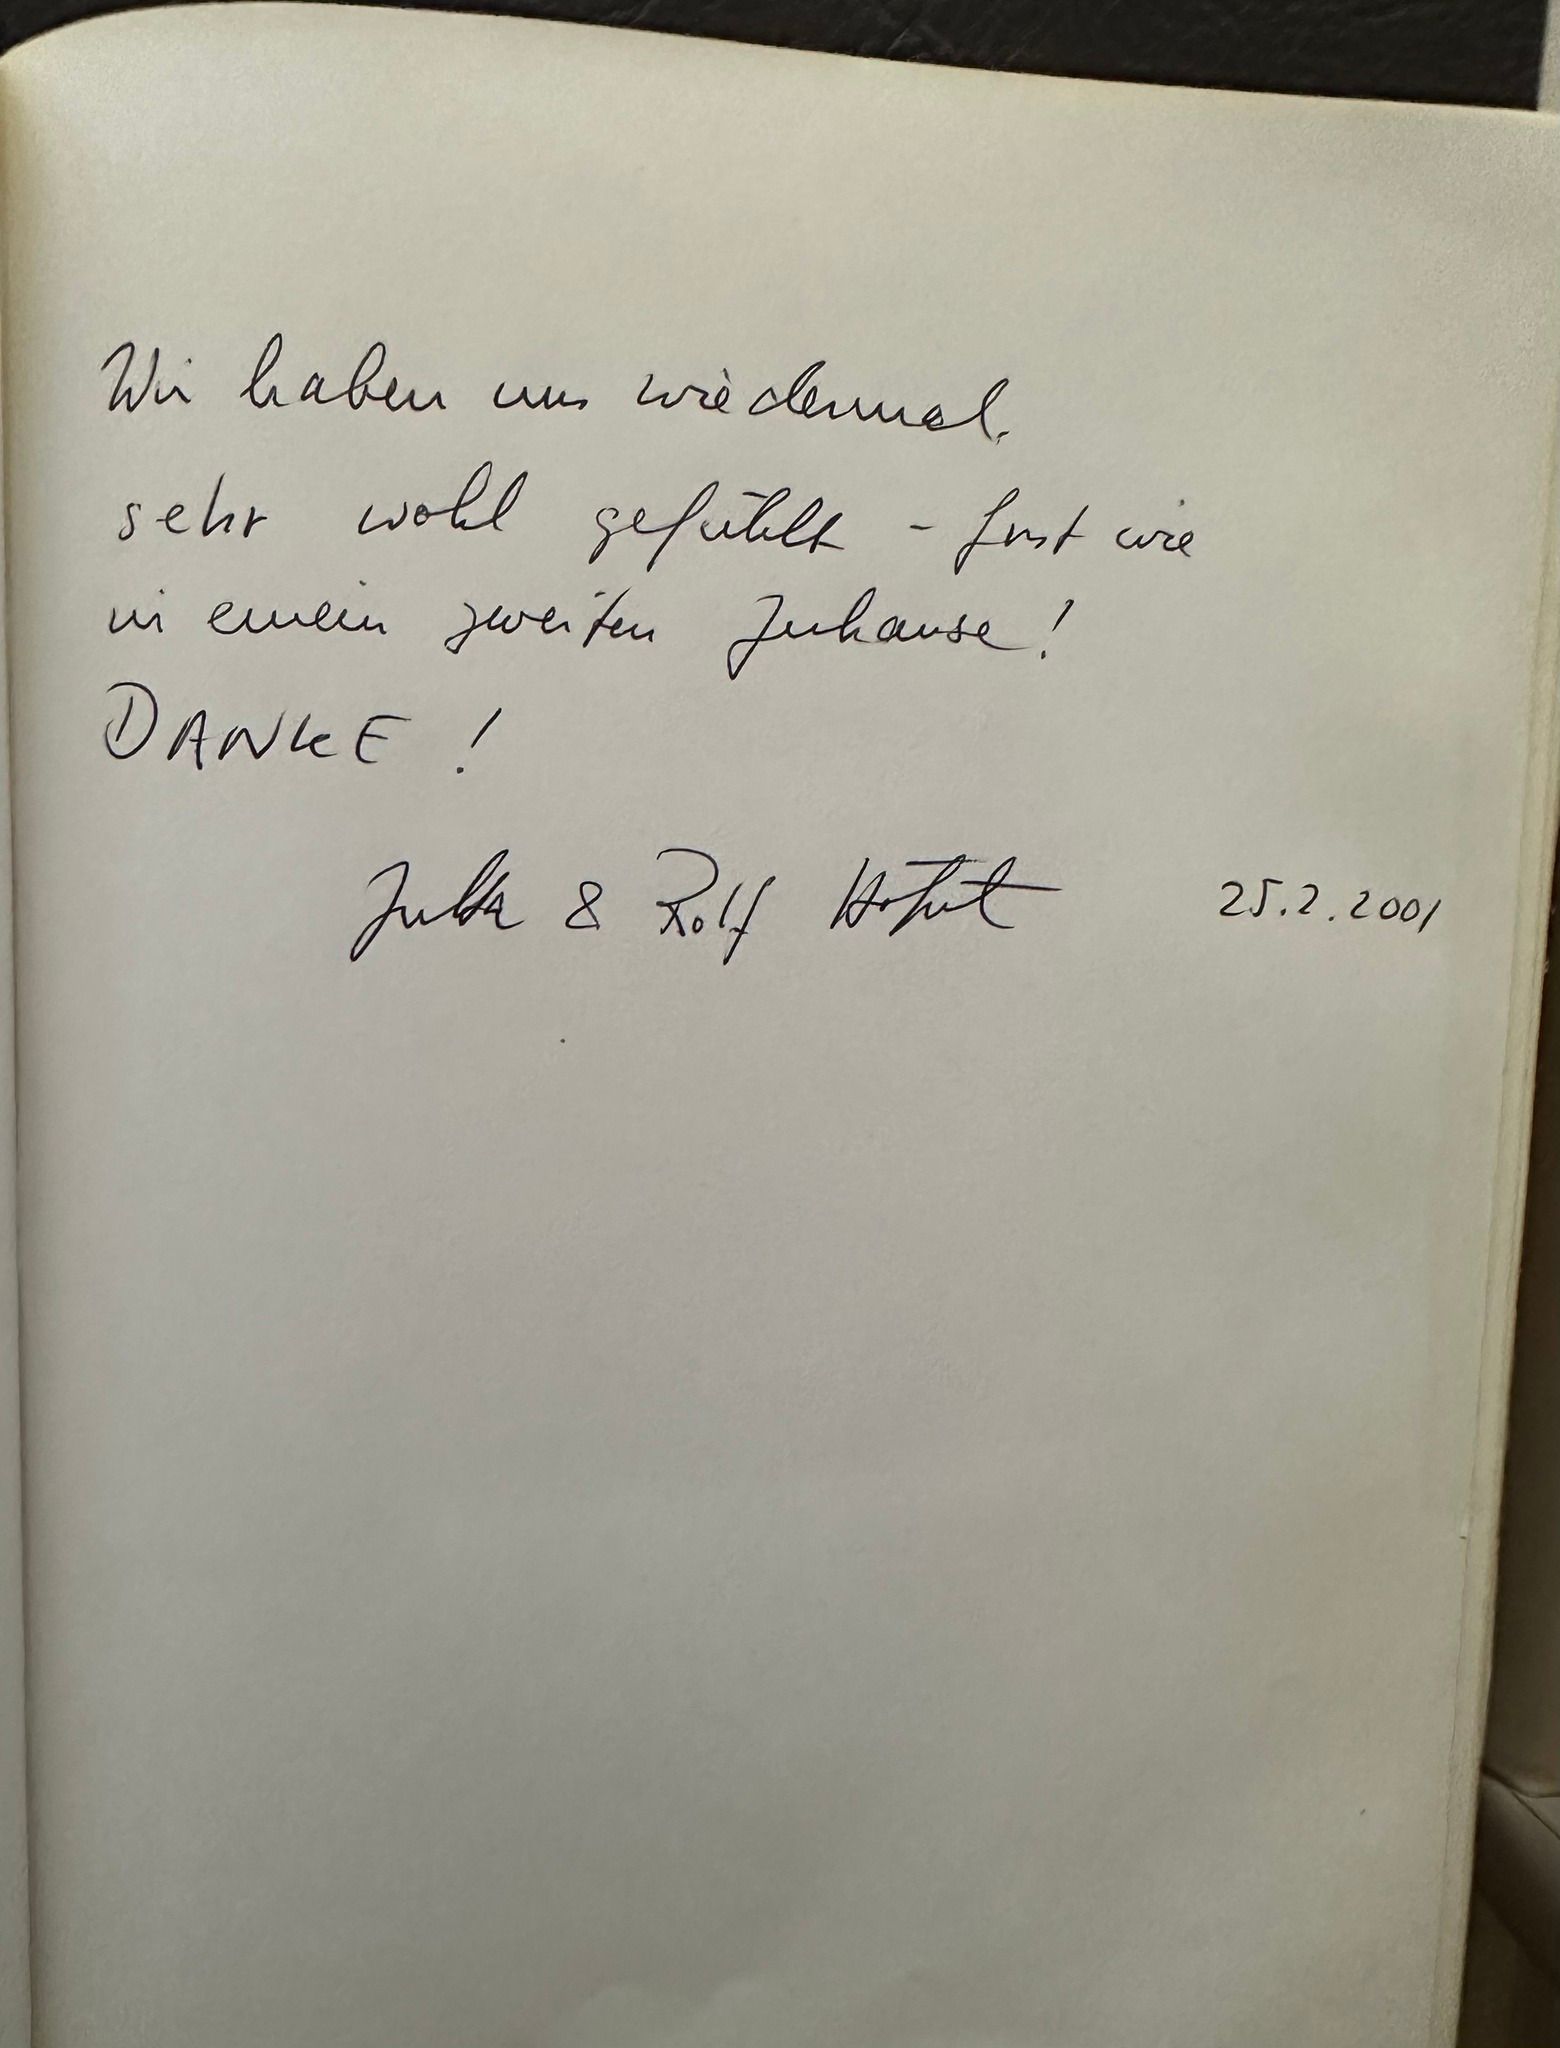 Wir haben uns wiedermal
sehr wohl gefühlt - fast wie
in einem zweiten Zuhause!
DANKE!
& Rolf 25.2.2001